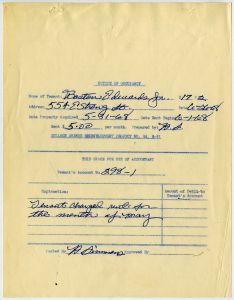 NOTICE OF OCCUPANCY
Name of Tenant: Boston Edwards Jr. 17-2
Address: 554 Estong St.
Date Property Acquired 5-31-68 Date Rent Begins 6-1-68
Rent $ 5.00 per month. Prepared by
COLLEGE GROUNDS REDEVELOPMENT PROJECT NO.
THIS SPACE FOR USE OF ACCOUNTANT
Tenant's Account No. 298-1
Explanation:
Amount of Debit to
Tenant's Account
Tenant charged rent for
the month of May
Posted By Approved By